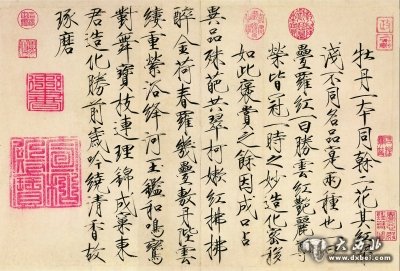 牡丹一本同榦二花其紅深
淺不同名品實兩種也一曰
疊羅紅一曰勝雲紅艷麗尊
榮皆冠一時之妙造化密移
如此褒賞之餘因成口占
異品殊葩共翠柯嫩紅拂拂
醉金荷春羅幾疊敷丹陛雲
縷重縈浴絳河玉鑑和鳴鸞
對舞寶枝連理錦成窠東
君造化勝前歲吟繞清香故
琢磨
大西北
www.dxbei.com